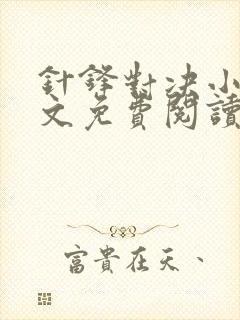 針鋒對决小
文免費閱讀
富貴在天、